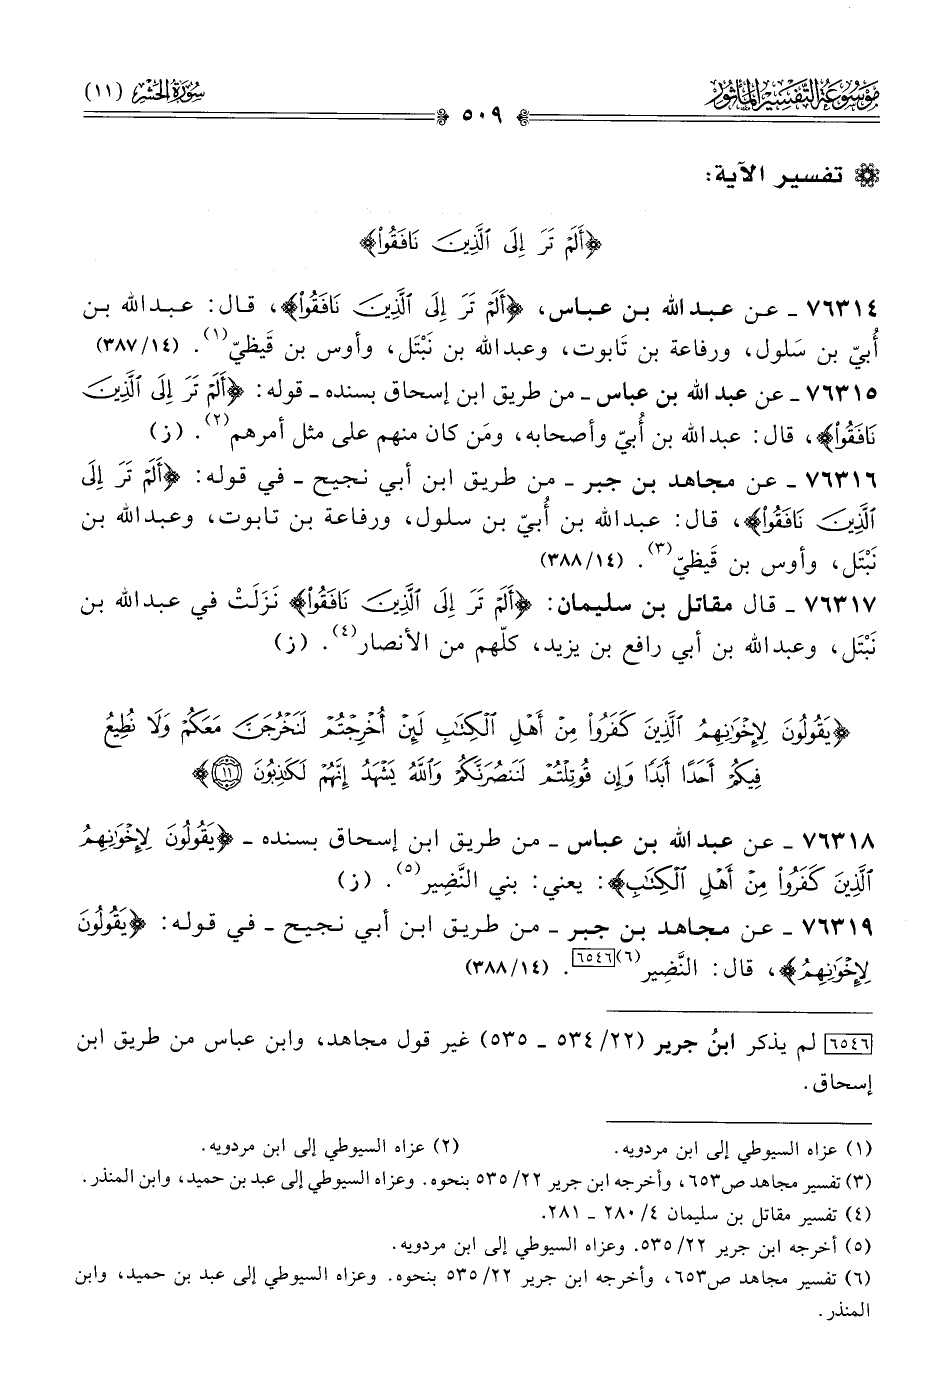 موسوعة التفسير المأثور
سورة الحشر (١١)
٥٠٩
تفسير الآية:
﴿أَلَمْ تَرَ إِلَى الَّذِينَ نَافَقُوا﴾
٧٦٣١٤ ـ عن عبد الله بن عباس، ﴿أَلَمْ تَرَ إِلَى الَّذِينَ نَافَقُوا﴾، قال: عبد الله بن
أُبيّ بن سَلول، ورفاعة بن تابوت، وعبد الله بن نَبْتَل، وأوس بن قَيظيّ(١). (١٤/٣٨٧)
٧٦٣١٥ ـ عن عبد الله بن عباس ـ من طريق ابن إسحاق بسنده ـ قوله: ﴿أَلَمْ تَرَ إِلَى الَّذِينَ
نَافَقُوا﴾، قال: عبد الله بن أُبيّ وأصحابه، ومَن كان منهم على مثل أمرهم(٢). (ز)
٧٦٣١٦ ـ عن مجاهد بن جبر ـ من طريق ابن أبي نجيح ـ في قوله: ﴿أَلَمْ تَرَ إِلَى
الَّذِينَ نَافَقُوا﴾، قال: عبد الله بن أُبيّ بن سلول، ورفاعة بن تابوت، وعبد الله بن
نَبْتَل، وأوس بن قَيظيّ(٣). (١٤/٣٨٨)
٧٦٣١٧ ـ قال مقاتل بن سليمان: ﴿أَلَمْ تَرَ إِلَى الَّذِينَ نَافَقُوا﴾ نَزَلَتْ في عبد الله بن
نَبْتَل، وعبد الله بن أبي رافع بن يزيد، كلّهم من الأنصار(٤). (ز)
﴿يَقُولُونَ لِإِخْوَانِهِمُ الَّذِينَ كَفَرُوا مِنْ أَهْلِ الْكِتَابِ لَئِنْ أُخْرِجْتُمْ لَنَخْرُجَنَّ مَعَكُمْ وَلَا نُطِيعُ
فِيكُمْ أَحَدًا أَبَدًا وَإِن قُوتِلْتُمْ لَنَنصُرَنَّكُمْ وَاللَّهُ يَشْهَدُ إِنَّهُمْ لَكَاذِبُونَ ١١﴾
٧٦٣١٨ ـ عن عبد الله بن عباس ـ من طريق ابن إسحاق بسنده ـ ﴿يَقُولُونَ لِإِخْوَانِهِمُ
الَّذِينَ كَفَرُوا مِنْ أَهْلِ الْكِتَابِ﴾: يعني: بني النَّضِير(٥). (ز)
٧٦٣١٩ ـ عن مجاهد بن جبر ـ من طريق ابن أبي نجيح ـ في قوله: ﴿يَقُولُونَ
لِإِخْوَانِهِمُ﴾، قال: النَّضِير(٦)[٦٥٤٦]. (١٤/٣٨٨)
[٦٥٤٦] لم يذكر ابنُ جرير (٢٢/٥٣٤ ـ ٥٣٥) غير قول مجاهد، وابن عباس من طريق ابن
إسحاق.
(١) عزاه السيوطي إلى ابن مردويه. (٢) عزاه السيوطي إلى ابن مردويه.
(٣) تفسير مجاهد ص٦٥٣، وأخرجه ابن جرير ٢٢/٥٣٥ بنحوه. وعزاه السيوطي إلى عبد بن حميد، وابن المنذر.
(٤) تفسير مقاتل بن سليمان ٤/٢٨٠ ـ ٢٨١.
(٥) أخرجه ابن جرير ٢٢/٥٣٥. وعزاه السيوطي إلى ابن مردويه.
(٦) تفسير مجاهد ص٦٥٣، وأخرجه ابن جرير ٢٢/٥٣٥ بنحوه. وعزاه السيوطي إلى عبد بن حميد، وابن
المنذر.